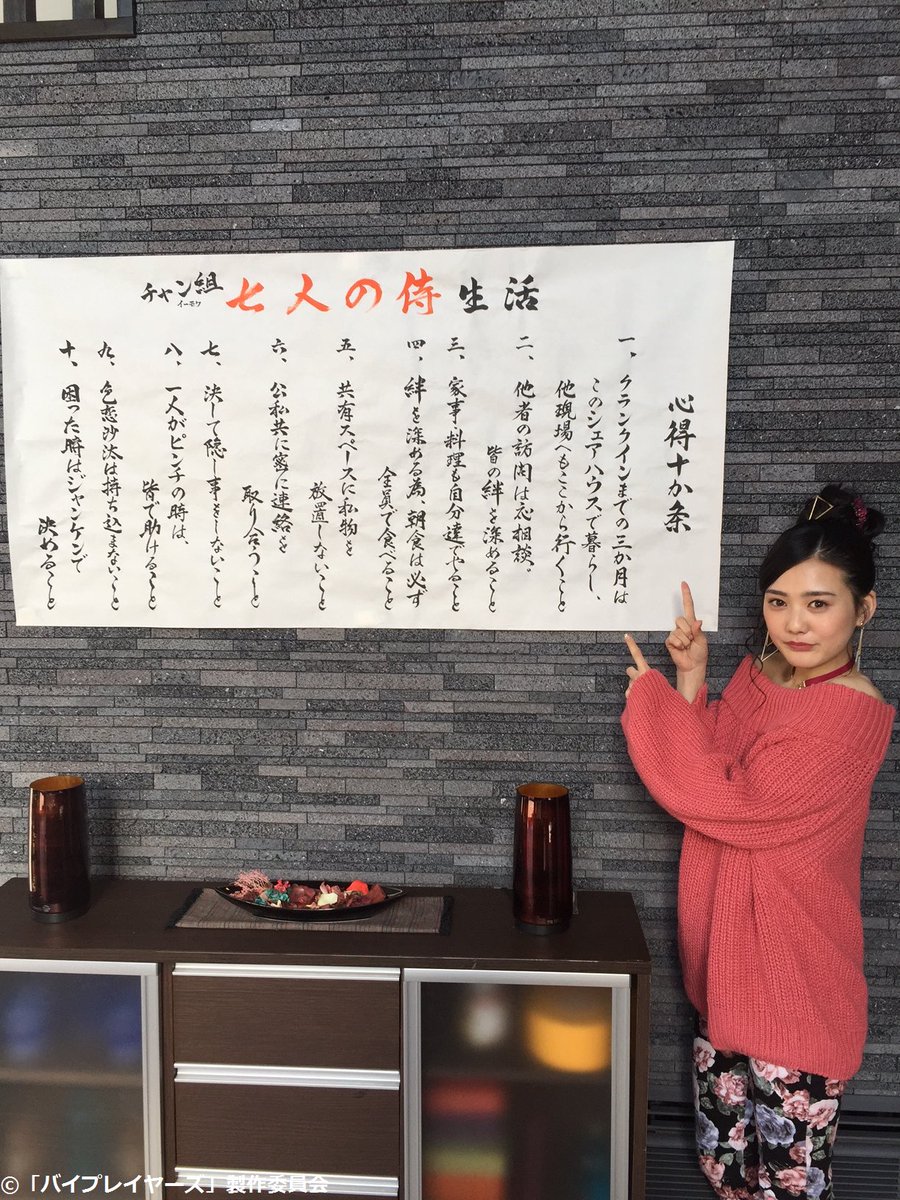 チャン組 七人の侍 生活
イーモウ
心得十か条
一、クランクインまでの三か月は
このシェアハウスで暮らし、
他現場へもここから行くこと
二、他者の訪問は応相談。
皆の絆を深めること
三、家事料理も自分達でやること
四、絆を深める為、朝食は必ず
全員で食べること
五、共有スペースに私物を
放置しないこと
六、公私共に密に連絡を
取り合うこと
七、決して隠し事をしないこと
八、一人がピンチの時は、
皆で助けること
九、色恋沙汰は持ち込まないこと
十、困った時はジャンケンで
決めること
©「バイプレイヤーズ」製作委員会